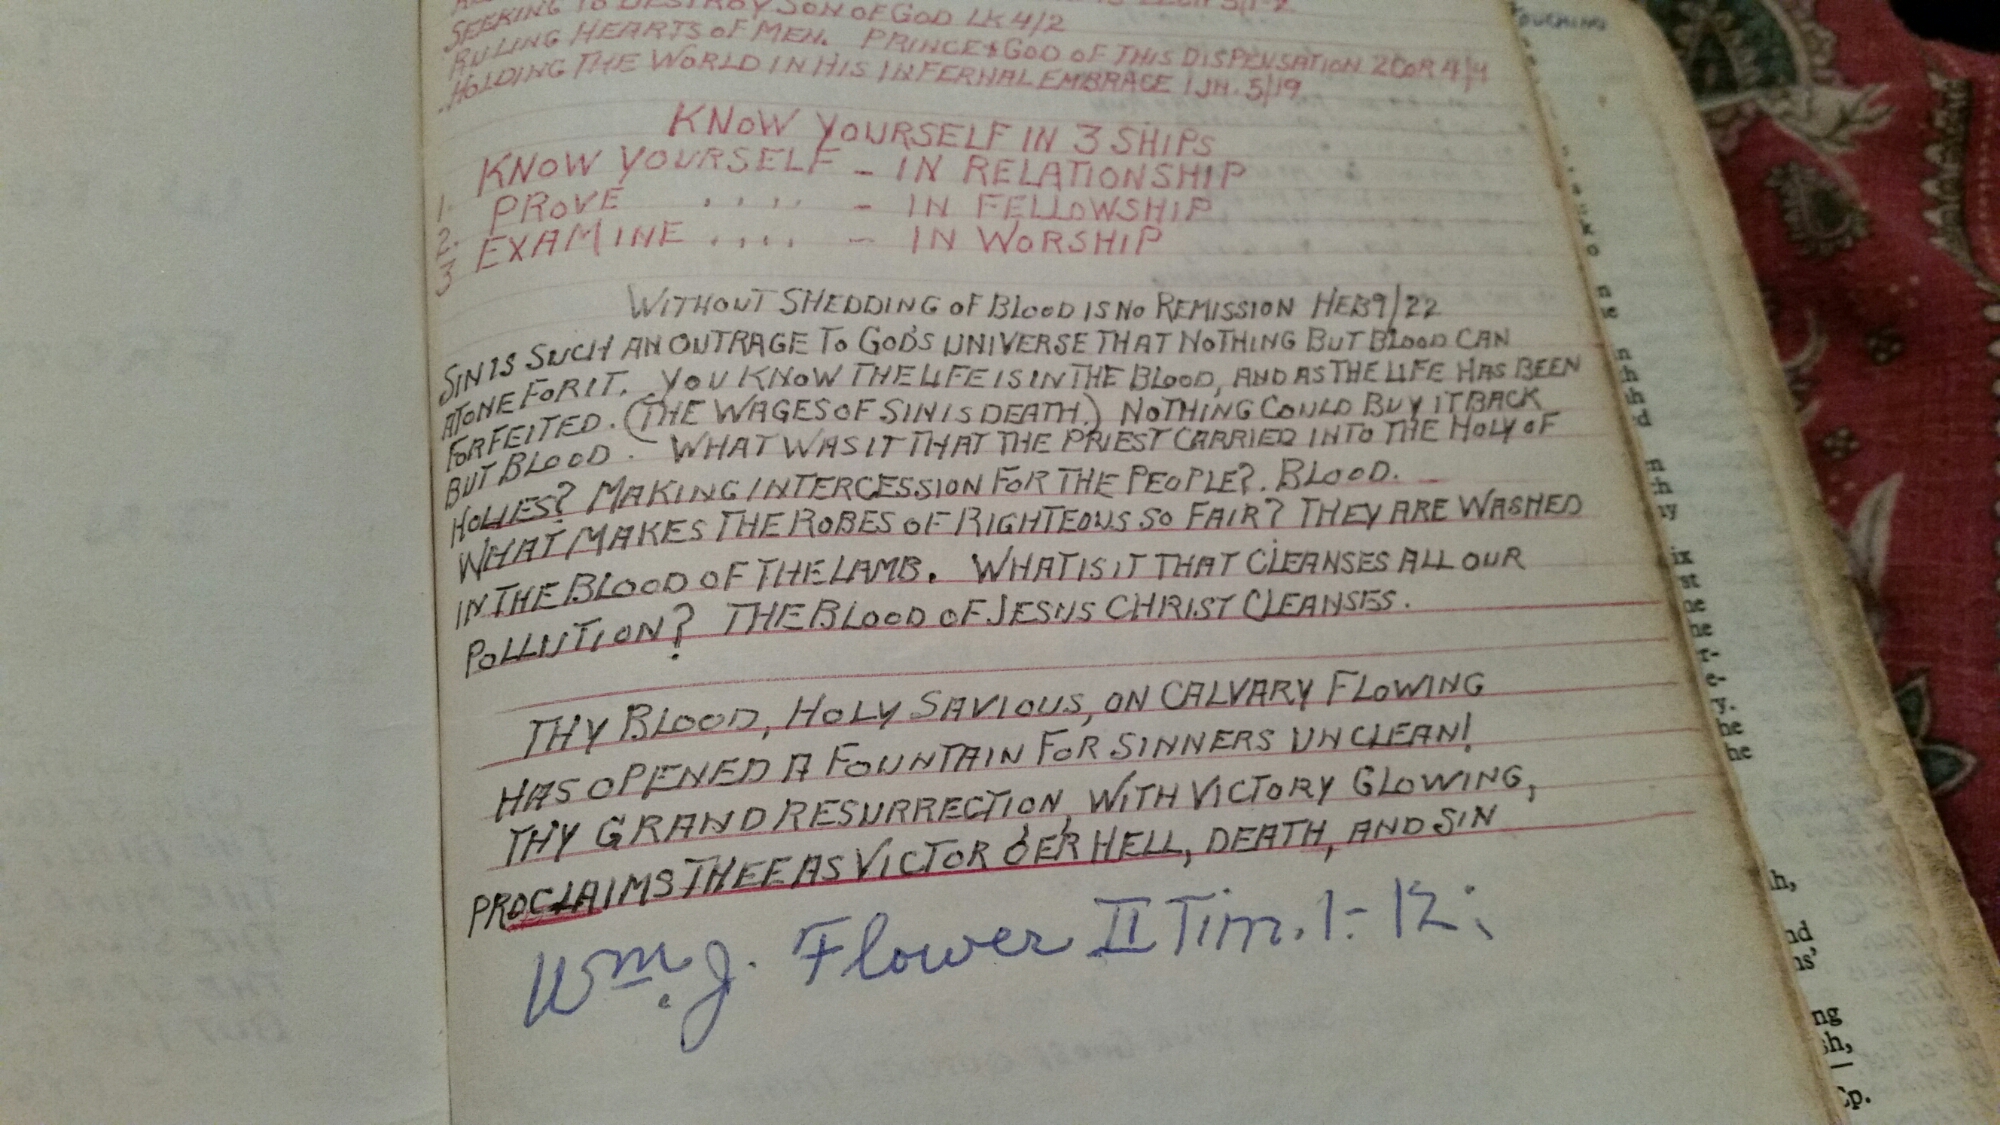 SEEKING TO DESTROY SON OF GOD LK 4/2
RULING HEARTS OF MEN. PRINCE & GOD OF THIS DISPENSATION 2 COR 4/4
HOLDING THE WORLD IN HIS INFERNAL EMBRACE 1 JN. 5/19
KNOW YOURSELF IN 3 SHIPS
1. KNOW YOURSELF - IN RELATIONSHIP
2. PROVE , , , , - IN FELLOWSHIP
3 EXAMINE , , , , - IN WORSHIP
WITHOUT SHEDDING OF BLOOD IS NO REMISSION HEB 9/22
SIN IS SUCH AN OUTRAGE TO GOD'S UNIVERSE THAT NOTHING BUT BLOOD CAN
ATONE FOR IT. YOU KNOW THE LIFE IS IN THE BLOOD, AND AS THE LIFE HAS BEEN
FORFEITED. (THE WAGES OF SIN IS DEATH.) NOTHING COULD BUY IT BACK
BUT BLOOD. WHAT WAS IT THAT THE PRIEST CARRIED INTO THE HOLY OF
HOLIES? MAKING INTERCESSION FOR THE PEOPLE?. BLOOD.
WHAT MAKES THE ROBES OF RIGHTEOUS SO FAIR? THEY ARE WASHED
IN THE BLOOD OF THE LAMB. WHAT IS IT THAT CLEANSES ALL OUR
POLLUTION? THE BLOOD OF JESUS CHRIST CLEANSES.
THY BLOOD, HOLY SAVIOUS, ON CALVARY FLOWING
HAS OPENED A FOUNTAIN FOR SINNERS UNCLEAN!
THY GRAND RESURRECTION, WITH VICTORY GLOWING,
PROCLAIMS THEE AS VICTOR O'ER HELL, DEATH, AND SIN
Wm. J. Flower II Tim. 1:-12;